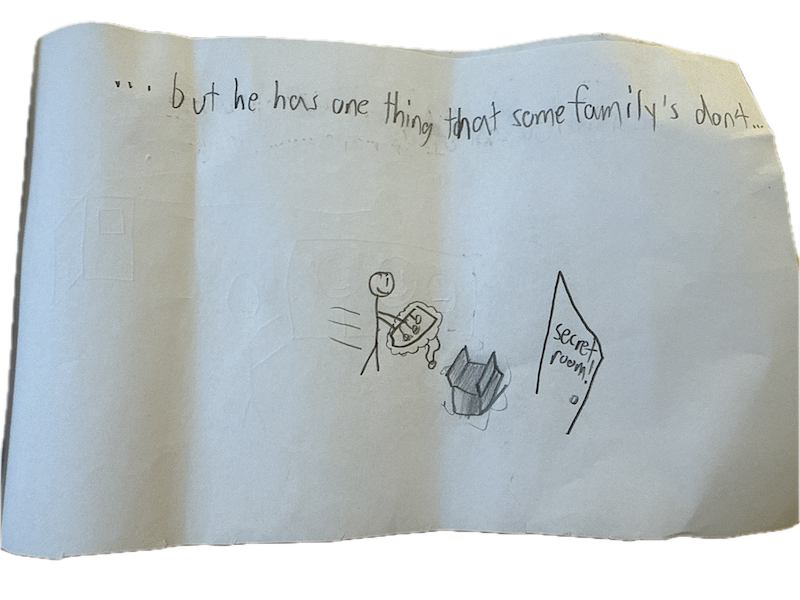 ... but he has one thing that some family's dont...
secret
room!